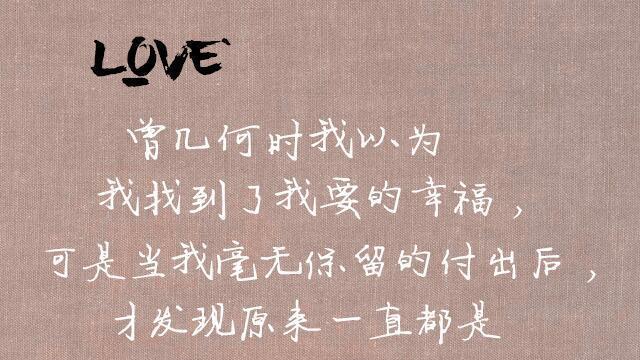 LOVE
曾几何时我以为
我找到了我要的幸福，
可是当我毫无保留的付出后，
才发现原来一直都是